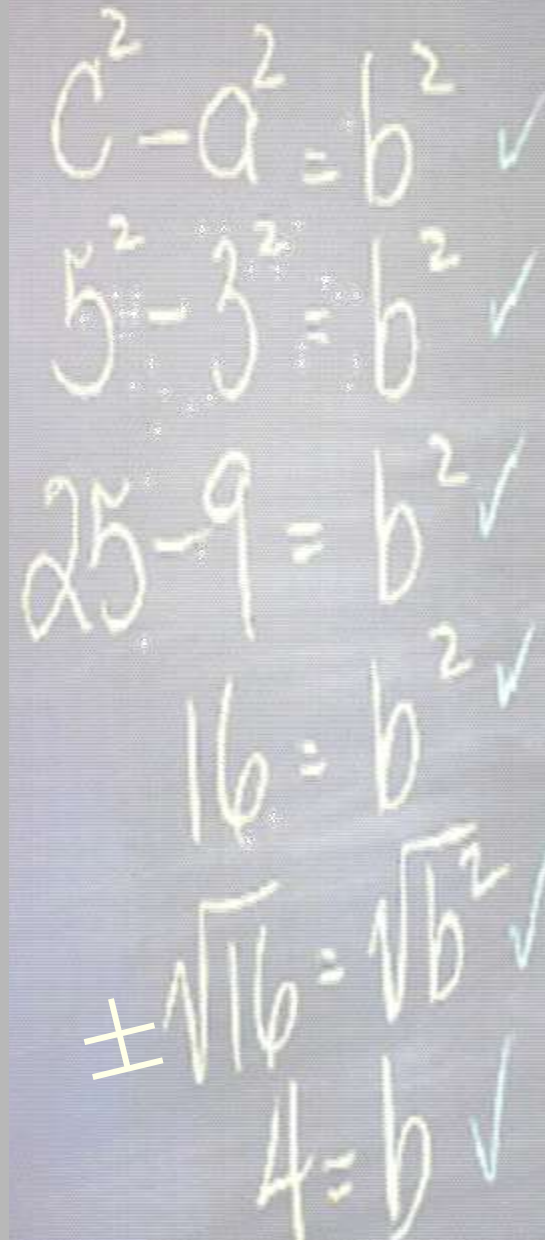 c² - a² = b² ✓
5² - 3² = b² ✓
25 - 9 = b² ✓
16 = b² ✓
± √16 = √b² ✓
4 = b ✓